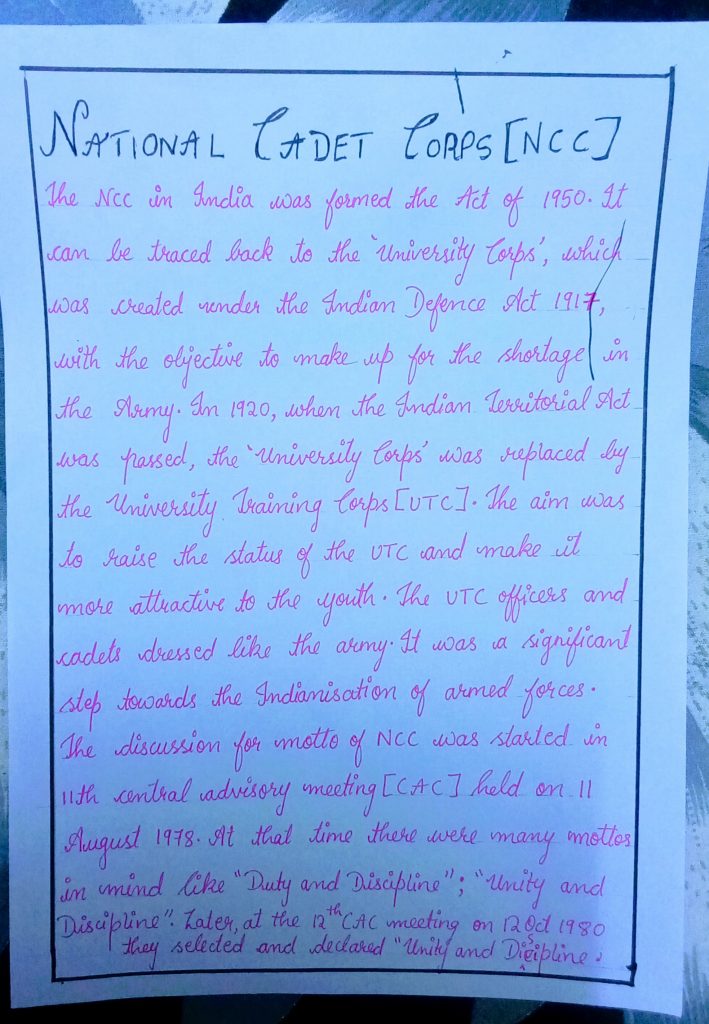 NATIONAL CADET CORPS [NCC]
The NCC in India was formed the Act of 1950. It
can be traced back to the 'University Corps', which
was created under the Indian Defence Act 1917,
with the objective to make up for the shortage in
the Army. In 1920, when the Indian Territorial Act
was passed, the 'University Corps' was replaced by
the University Training Corps [UTC]. The aim was
to raise the status of the UTC and make it
more attractive to the youth. The UTC officers and
cadets dressed like the army. It was a significant
step towards the Indianisation of armed forces.
The discussion for motto of NCC was started in
11th central advisory meeting [CAC] held on 11
August 1978. At that time there were many mottos
in mind like "Duty and Discipline"; "Unity and
Discipline". Later, at the 12th CAC meeting on 12 Oct 1980
they selected and declared "Unity and Discipline.